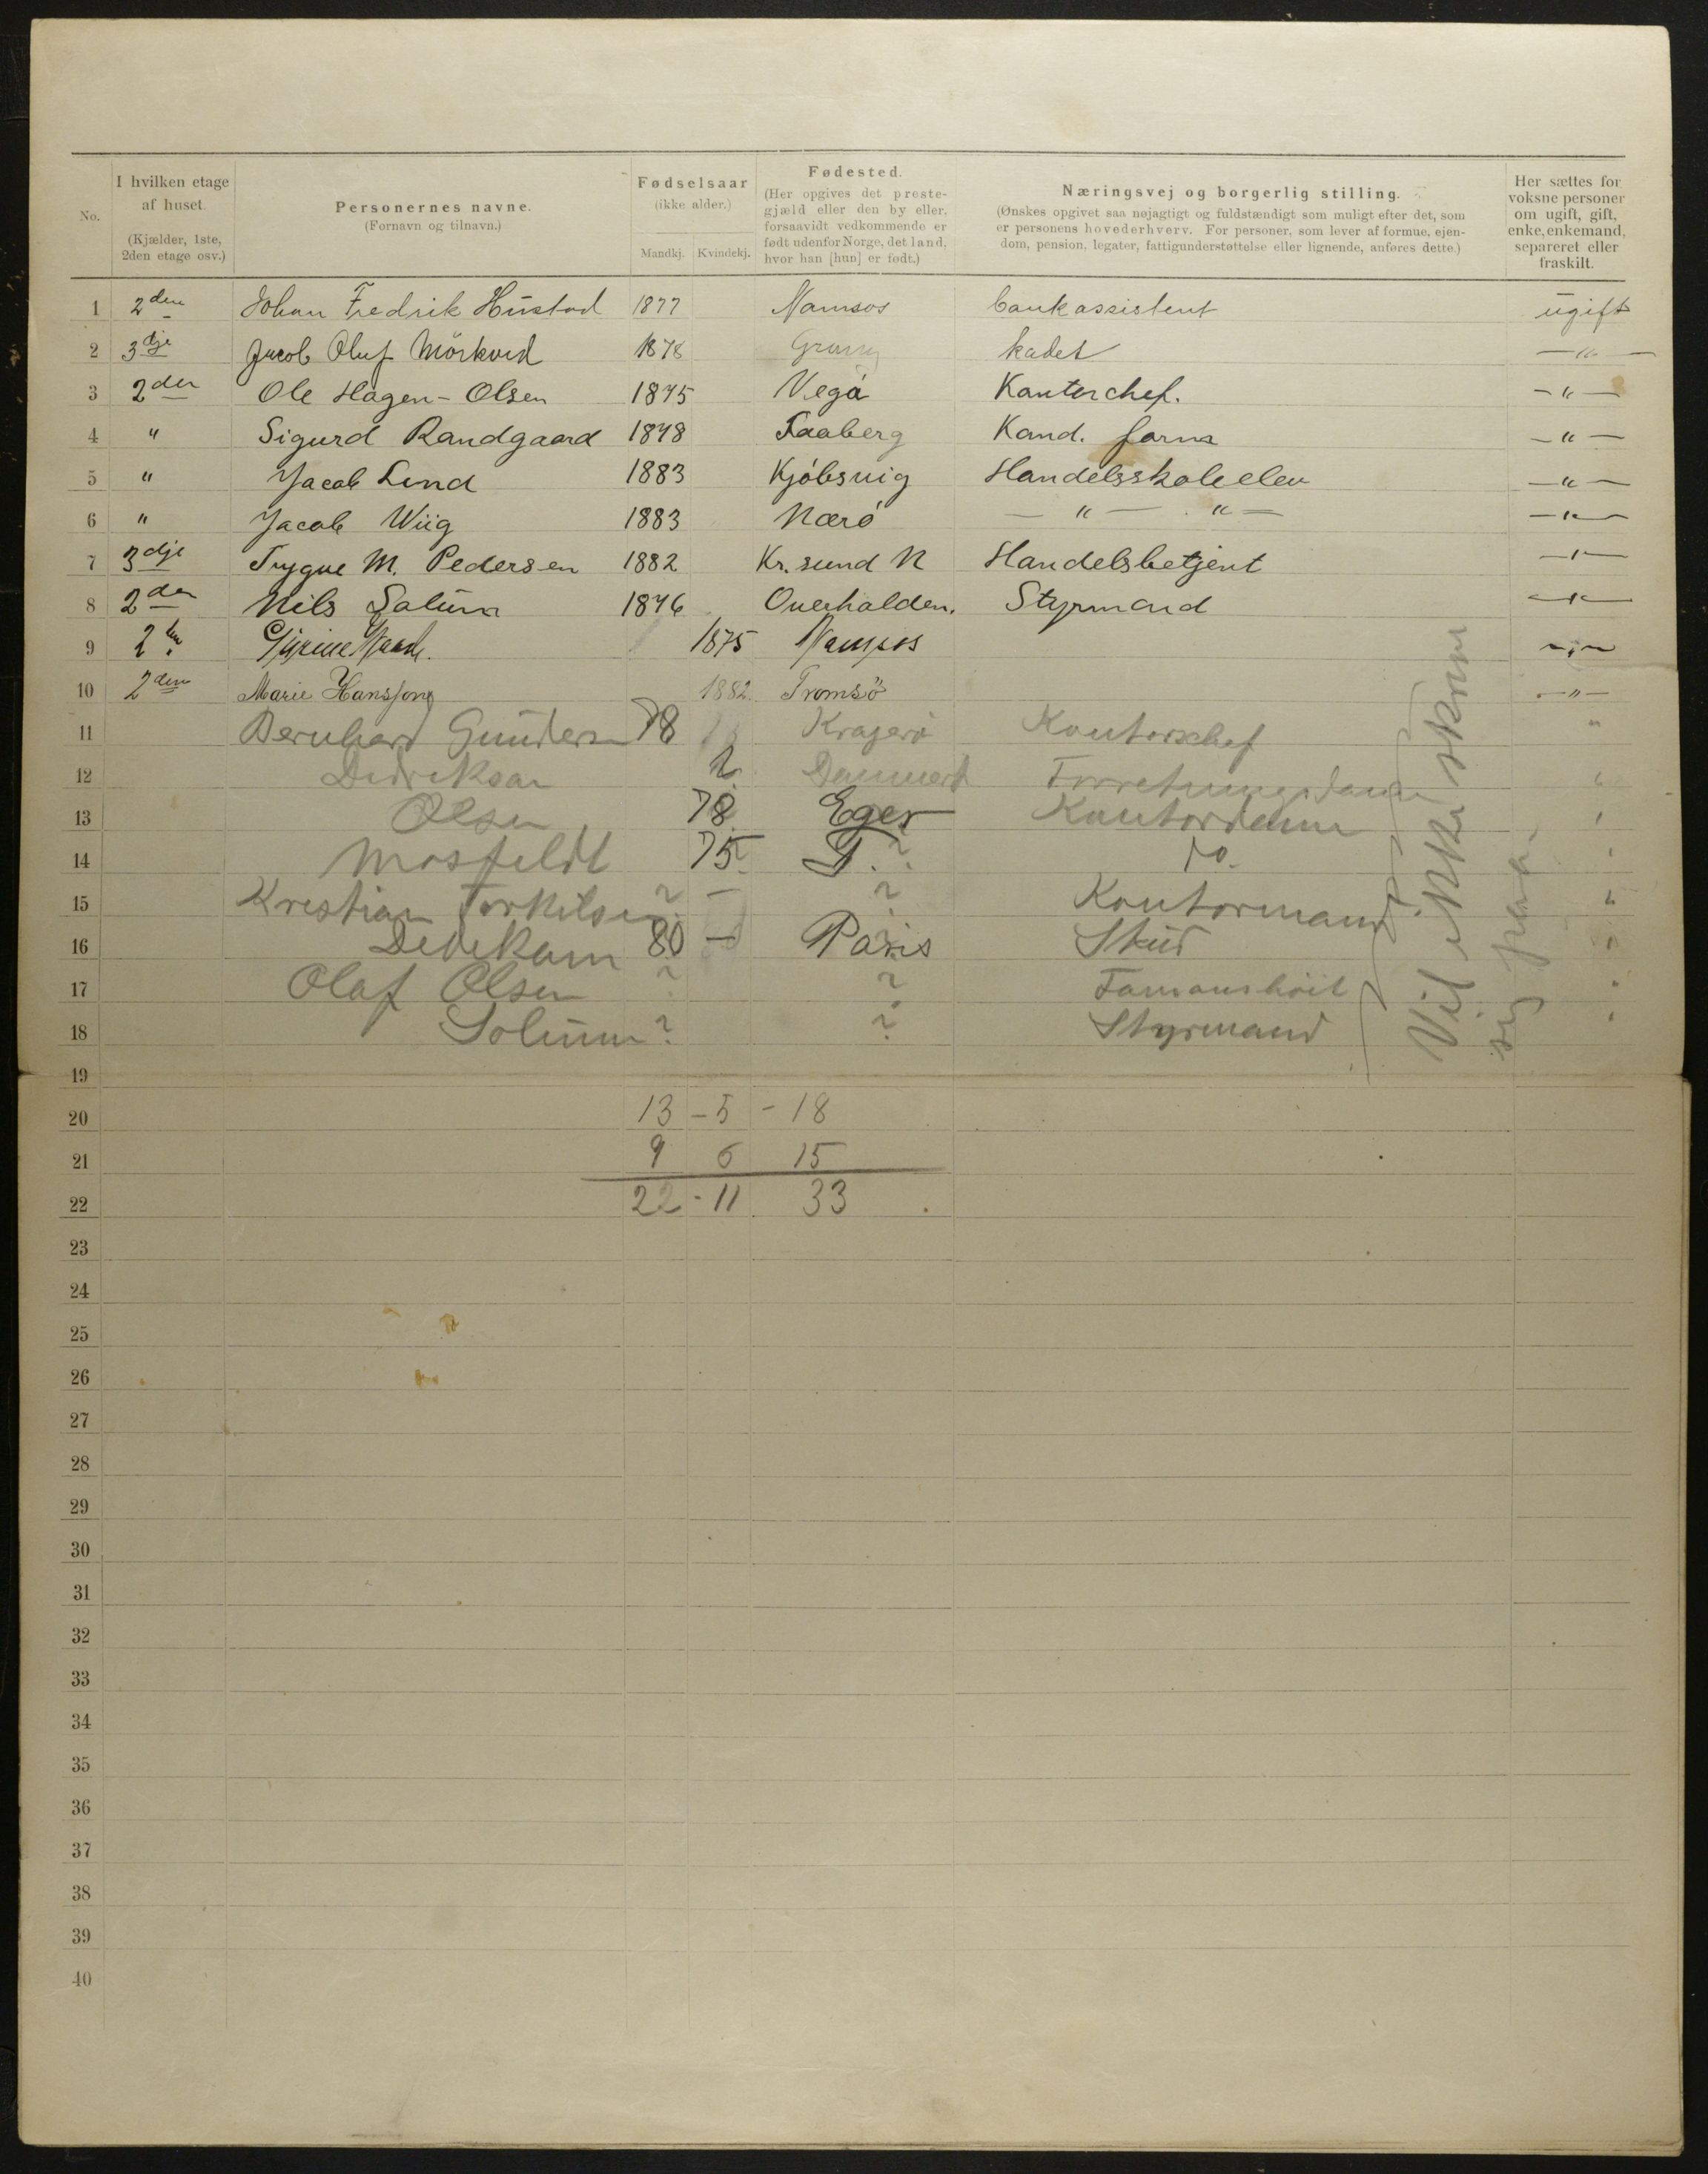 No. I hvilken etage af huset. (Kjælder, 1ste, 2den etage osv.) Personernes navne. (Fornavn og tilnavn.) Fødselsaar (ikke alder.) Mandkj. Kvindekj. Fødested. (Her opgives det prestegjæld eller den by eller, forsaavidt vedkommende er født udenfor Norge, det land, hvor han [hun] er født.) Næringsvej og borgerlig stilling. (Ønskes opgivet saa nøjagtigt og fuldstændigt som muligt efter det, som er personens hovederhverv. For personer, som lever af formue, ejendom, pension, legater, fattigunderstøttelse eller lignende, anføres dette.) Her sættes for voksne personer om ugift, gift, enke, enkemand, separeret eller fraskilt.
1 2den Johan Fredrik Hustad 1877 Namsos bankassistent ugift
2 3dje Jacob Oluf Mörkved 1878 Grong kadet — " —
3 2den Ole Hagen-Olsen 1875 Vega Kontorchef. — " —
4 " Sigurd Randgaard 1878 Faaberg Kand. farm — " —
5 " Jacob Lund 1883 Kjöbsvig Handelsskoleelev — " —
6 " Jacob Wiig 1883 Nærö — " — " — — " —
7 3dje Trygve M. Pedersen 1882 Kr.sund N Handelsbetjent — " —
8 2den Nils Solum 1876 Overhalden. Styrmand — " —
9 2den 1875 Namsos — " —
10 2den Marie Hanssen 1882 Tromsö — " —
11 Bernhard Gundersen 78 Kragerö Kontorschef "
12 Didriksen ? Danmark Forretningsdame "
13 Olsen 78 Eger Kontordame "
14 Mosfeldt 75 T. ? do. "
15 Kristian Torkilsen ? — ? Kontormand "
16 Dedekam 80 — Paris Stud "
17 Olaf Olsen ? ? "
18 Solum ? ? Styrmand "
Vil ikke skrive sig paa.
19
20 13 - 5 - 18
21 9 6 15
22 22 - 11 33
23
24
25
26
27
28
29
30
31
32
33
34
35
36
37
38
39
40